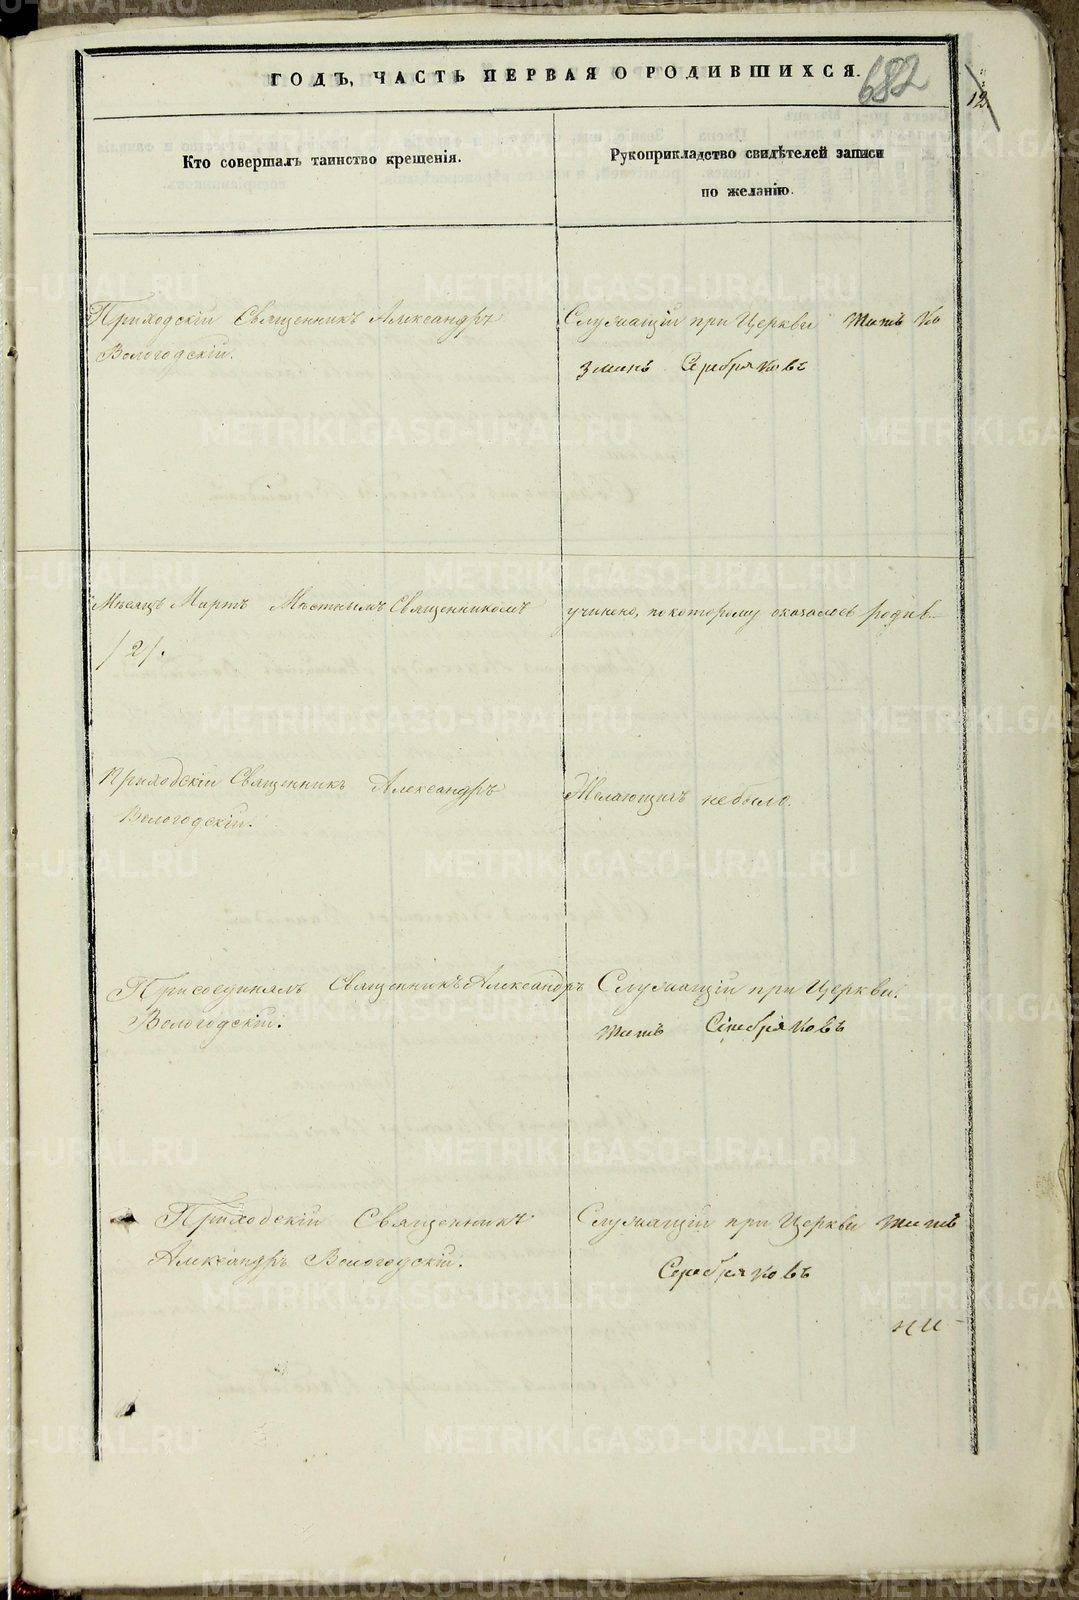 ГОДЪ, ЧАСТЬ ПЕРВАЯ О РОДИВШИХСЯ.
682
12.
Кто совершалъ таинство крещенія.
Рукоприкладство свидѣтелей записи
по желанію.
Приходскій Священникъ Александръ
Вологодскій.
Служащій при Церкви Титъ Ко
зминъ Серебряковъ
Мѣсяцъ Мартъ Мѣстнымъ Священникомъ
/2/.
учинено, по которому оказалось родив-
Приходскій Священникъ Александръ
Вологодскій.
Желающихъ небыло.
Присоединялъ Священникъ Александръ
Вологодскій.
Служащій при Церкви
Титъ Серебряковъ
Приходскій Священникъ
Александръ Вологодскій.
Служащій при Церкви Титъ
Серебряковъ
METRIKI.GASO-URAL.RU